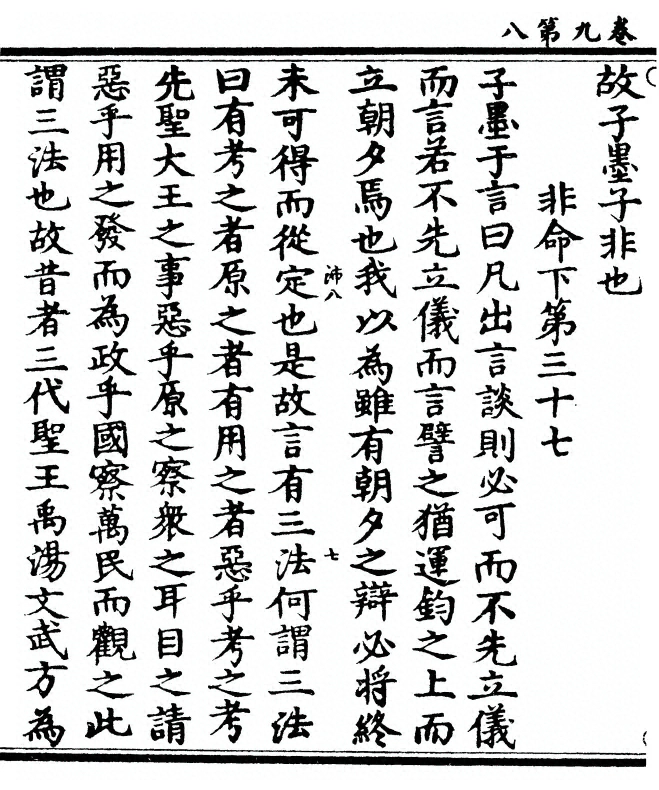 卷九第八
故子墨子非也
非命下第三十七
子墨于言曰凡出言談則必可而不先立儀
而言若不先立儀而言譬之猶運鈞之上而
立朝夕焉也我以為雖有朝夕之辯必將終
沛八
七
未可得而從定也是故言有三法何謂三法
曰有考之者原之者有用之者惡乎考之考
先聖大王之事惡乎原之察衆之耳目之請
惡乎用之發而為政乎國察萬民而觀之此
謂三法也故昔者三代聖王禹湯文武方為